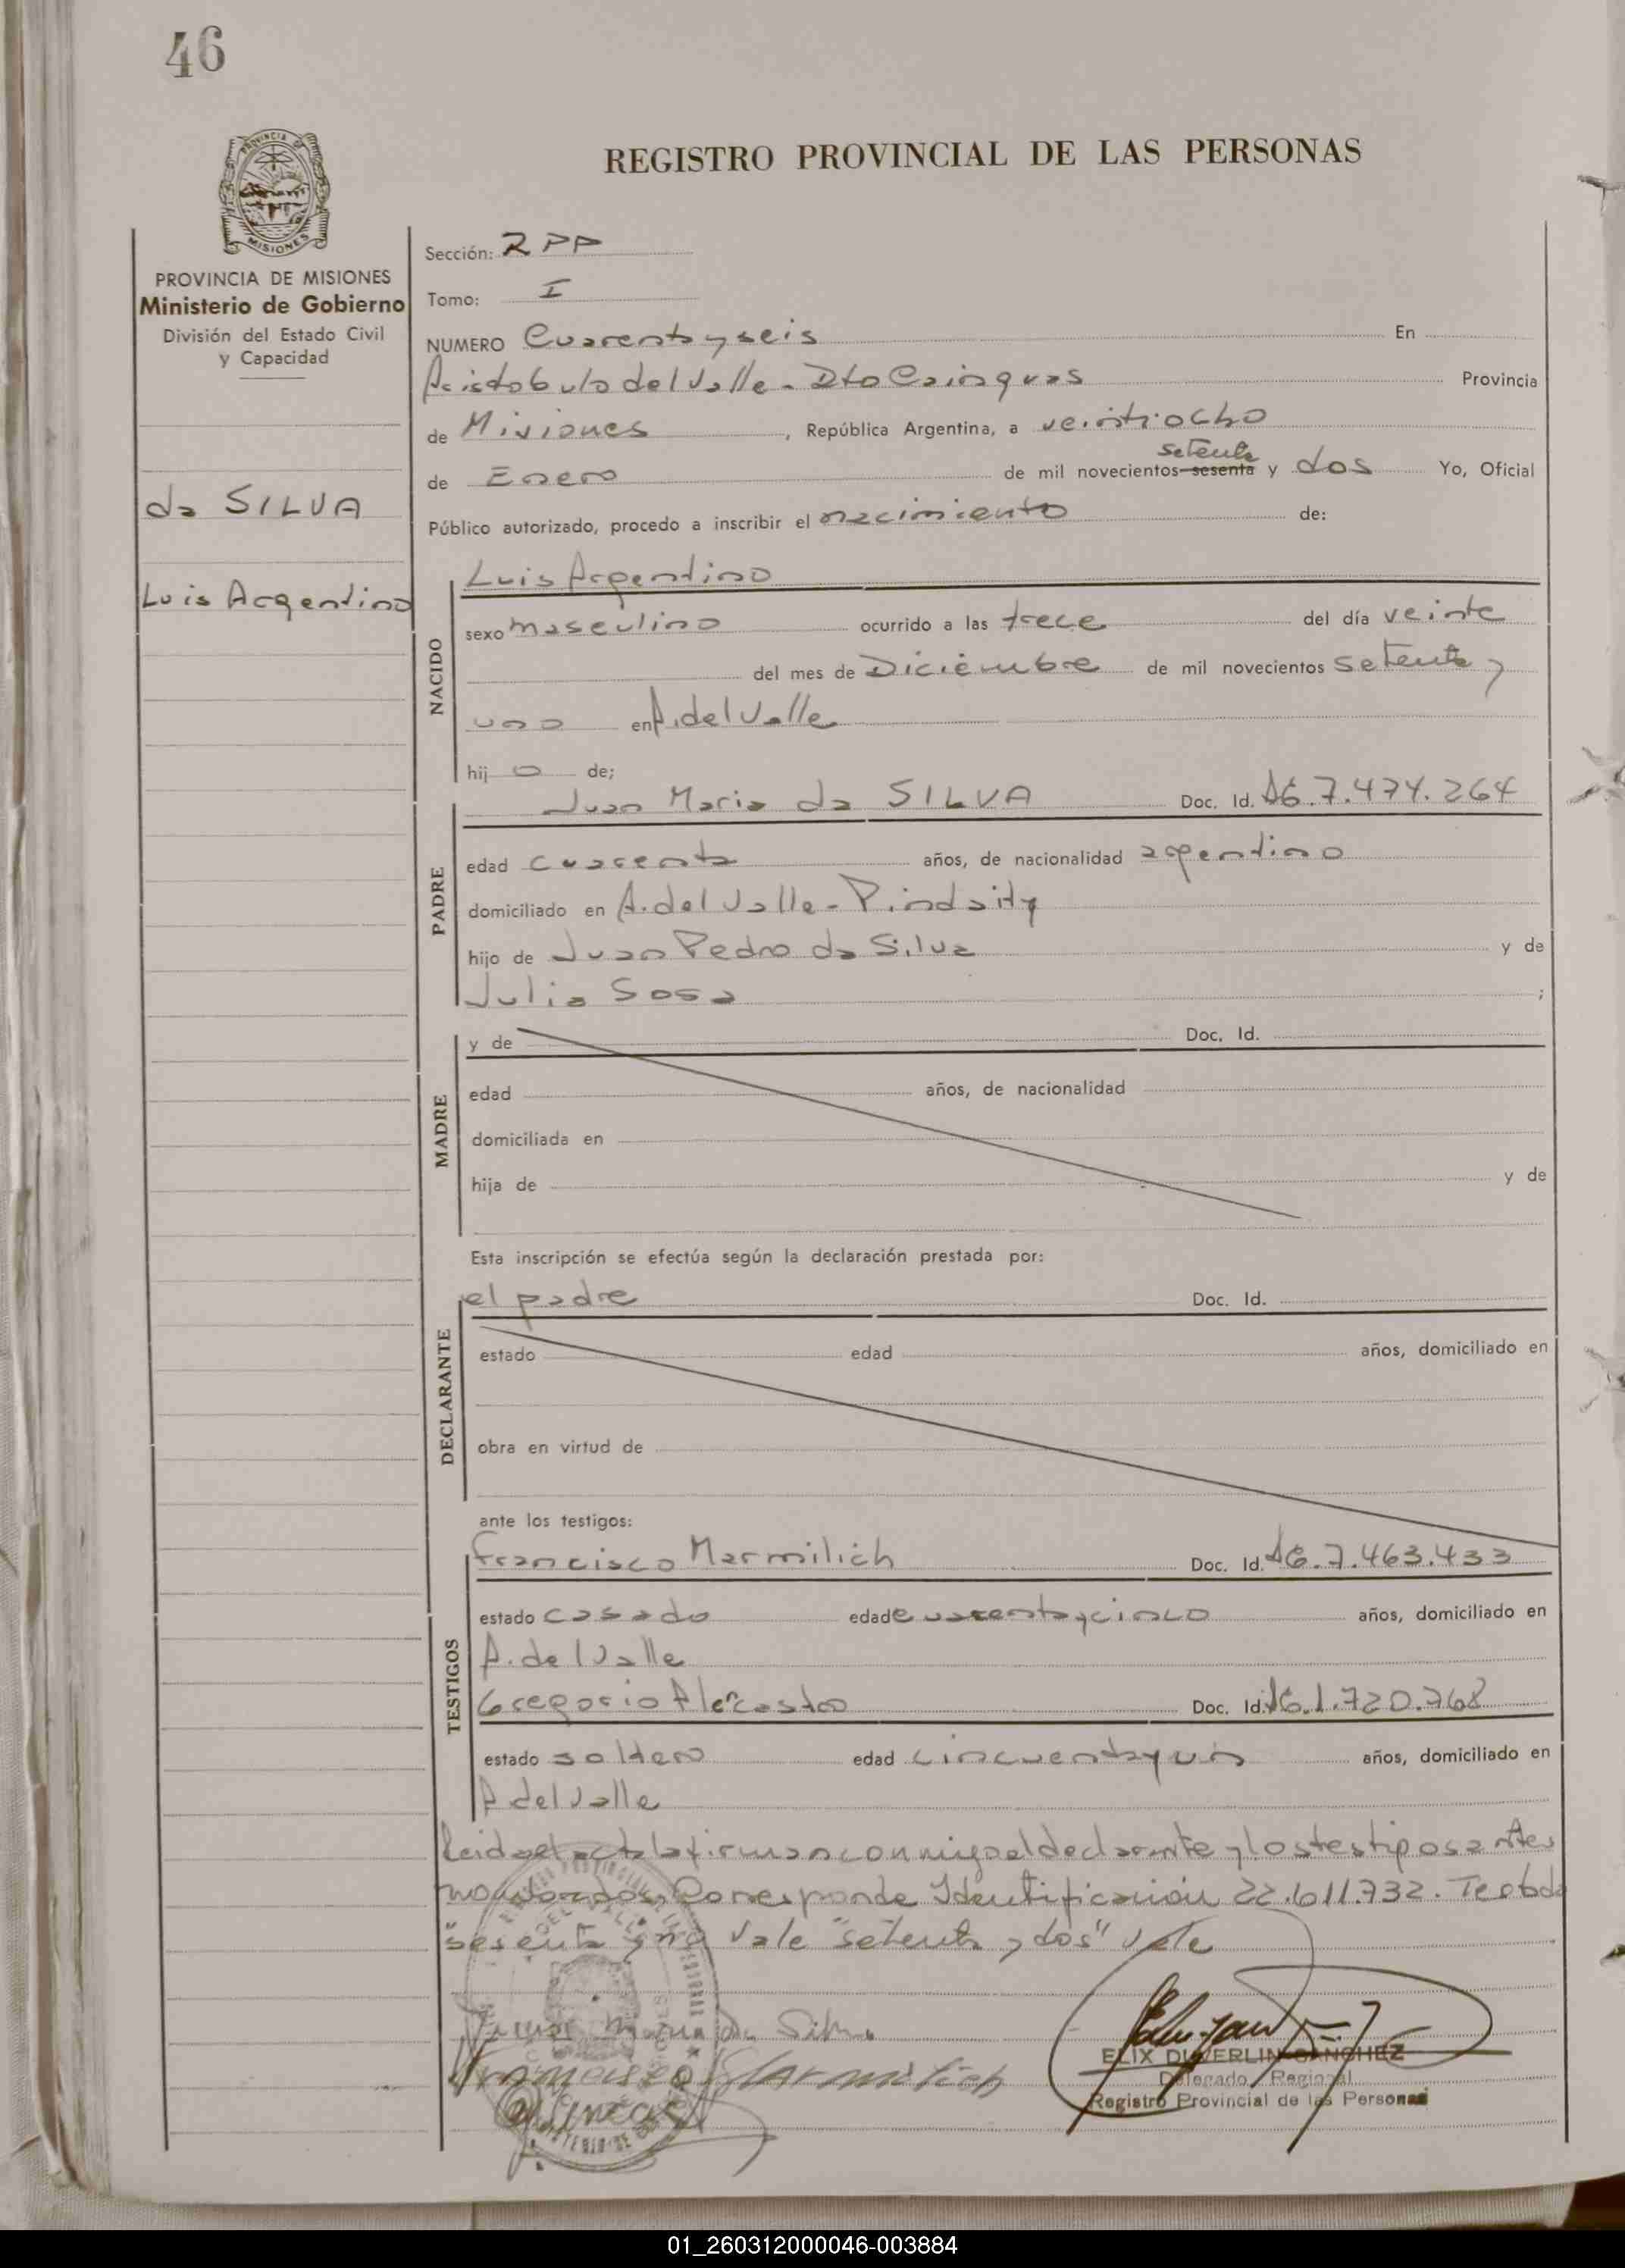 46
PROVINCIA DE MISIONES
REGISTRO PROVINCIAL DE LAS PERSONAS
PROVINCIA DE MISIONES
Ministerio de Gobierno
División del Estado Civil
y Capacidad
da SILVA
Luis Argentino
Sección: RPP
Tomo: I
NUMERO Cuarenta y seis En
Aristobulo del Valle - Dto Cainguas Provincia
de Misiones, República Argentina, a veintiocho
setenta
de Enero de mil novecientos sesenta y dos Yo, Oficial
Público autorizado, procedo a inscribir el nacimiento de:
NACIDO
Luis Argentino
sexo masculino ocurrido a las trece del día veinte
del mes de Diciembre de mil novecientos setenta y
uno en A. del Valle
hijo de;
PADRE
Juan Maria da SILVA Doc. Id. 7.474.264
edad cuarenta años, de nacionalidad argentino
domiciliado en A. del Valle - Pindaity
hijo de Juan Pedro da Silva y de
Julia Sosa ;
MADRE
y de Doc. Id.
edad años, de nacionalidad
domiciliada en
hija de y de
Esta inscripción se efectúa según la declaración prestada por:
DECLARANTE
el padre Doc. Id.
estado edad años, domiciliado en
obra en virtud de
ante los testigos:
TESTIGOS
Francisco Marmilich Doc. Id. 7.463.433
estado casado edad cuarenta y cinco años, domiciliado en
A. del Valle
Gregorio Doc. Id. 1.720.768
estado soltero edad cincuenta y un años, domiciliado en
A del Valle
Leida el acta la firman conmigo el declarante y los testigos antes
Corresponde Identificación 22.611.732. Testado
"sesenta y no vale "setenta y dos" vale
Juan Maria Da Silva
Francisco Marmilich
ELIX DUVERLIN SANCHEZ
Delegado Regional
Registro Provincial de las Personas
01_260312000046-003884